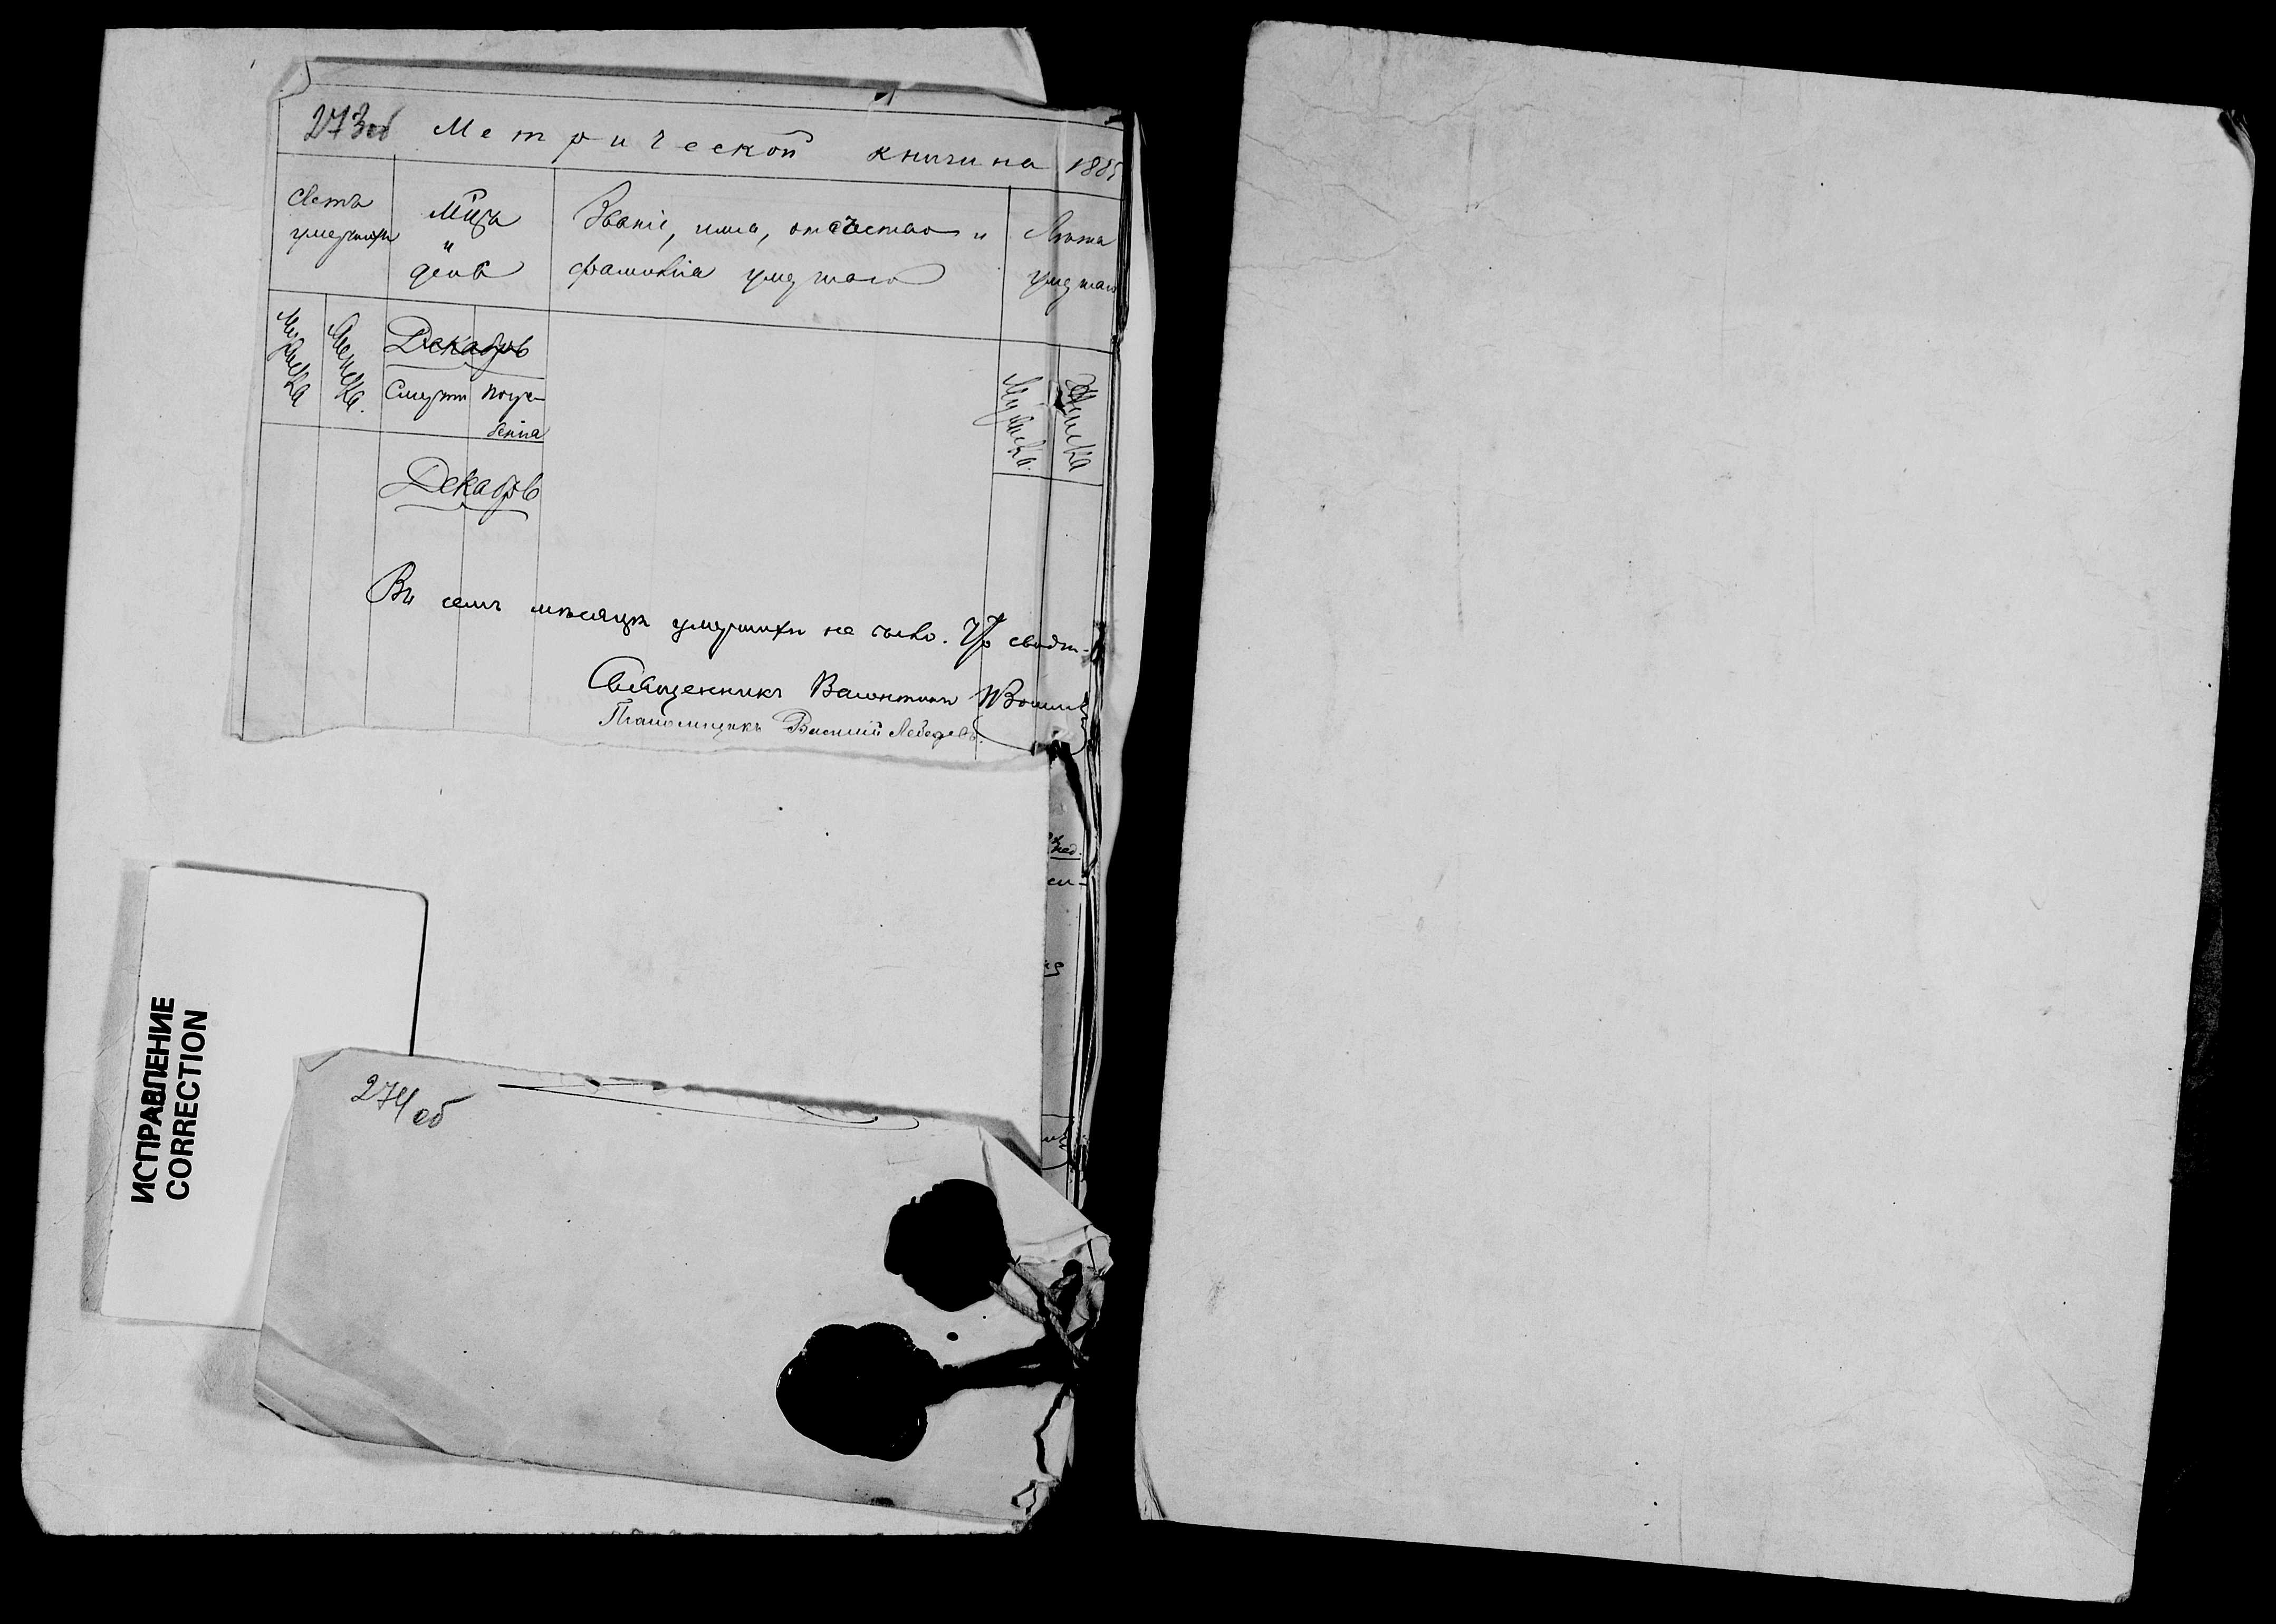 273об Метрической книги на 188
Счетъ умершихъ
Мцъ и день
Званіе, имя, отчество и фамилія умершаго
Лѣта умершаго
Мужеска
Женска.
Декабрь
Смерти
Погре-
бенія
Мужеска.
Женска
Декабрь
Въ семъ мѣсяцѣ умершихъ не было. Что свидѣт-
Священникъ Валентинъ
Псаломщикъ Василій Лебедевъ.
ИСПРАВЛЕНИЕ
CORRECTION
274об